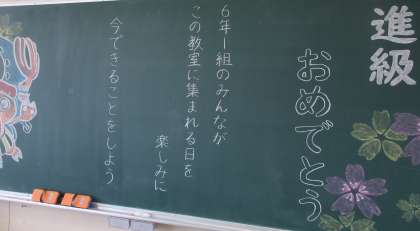 進級
おめでとう
6年1組のみんなが
この教室に集まれる日を
楽しみに
今できることをしよう